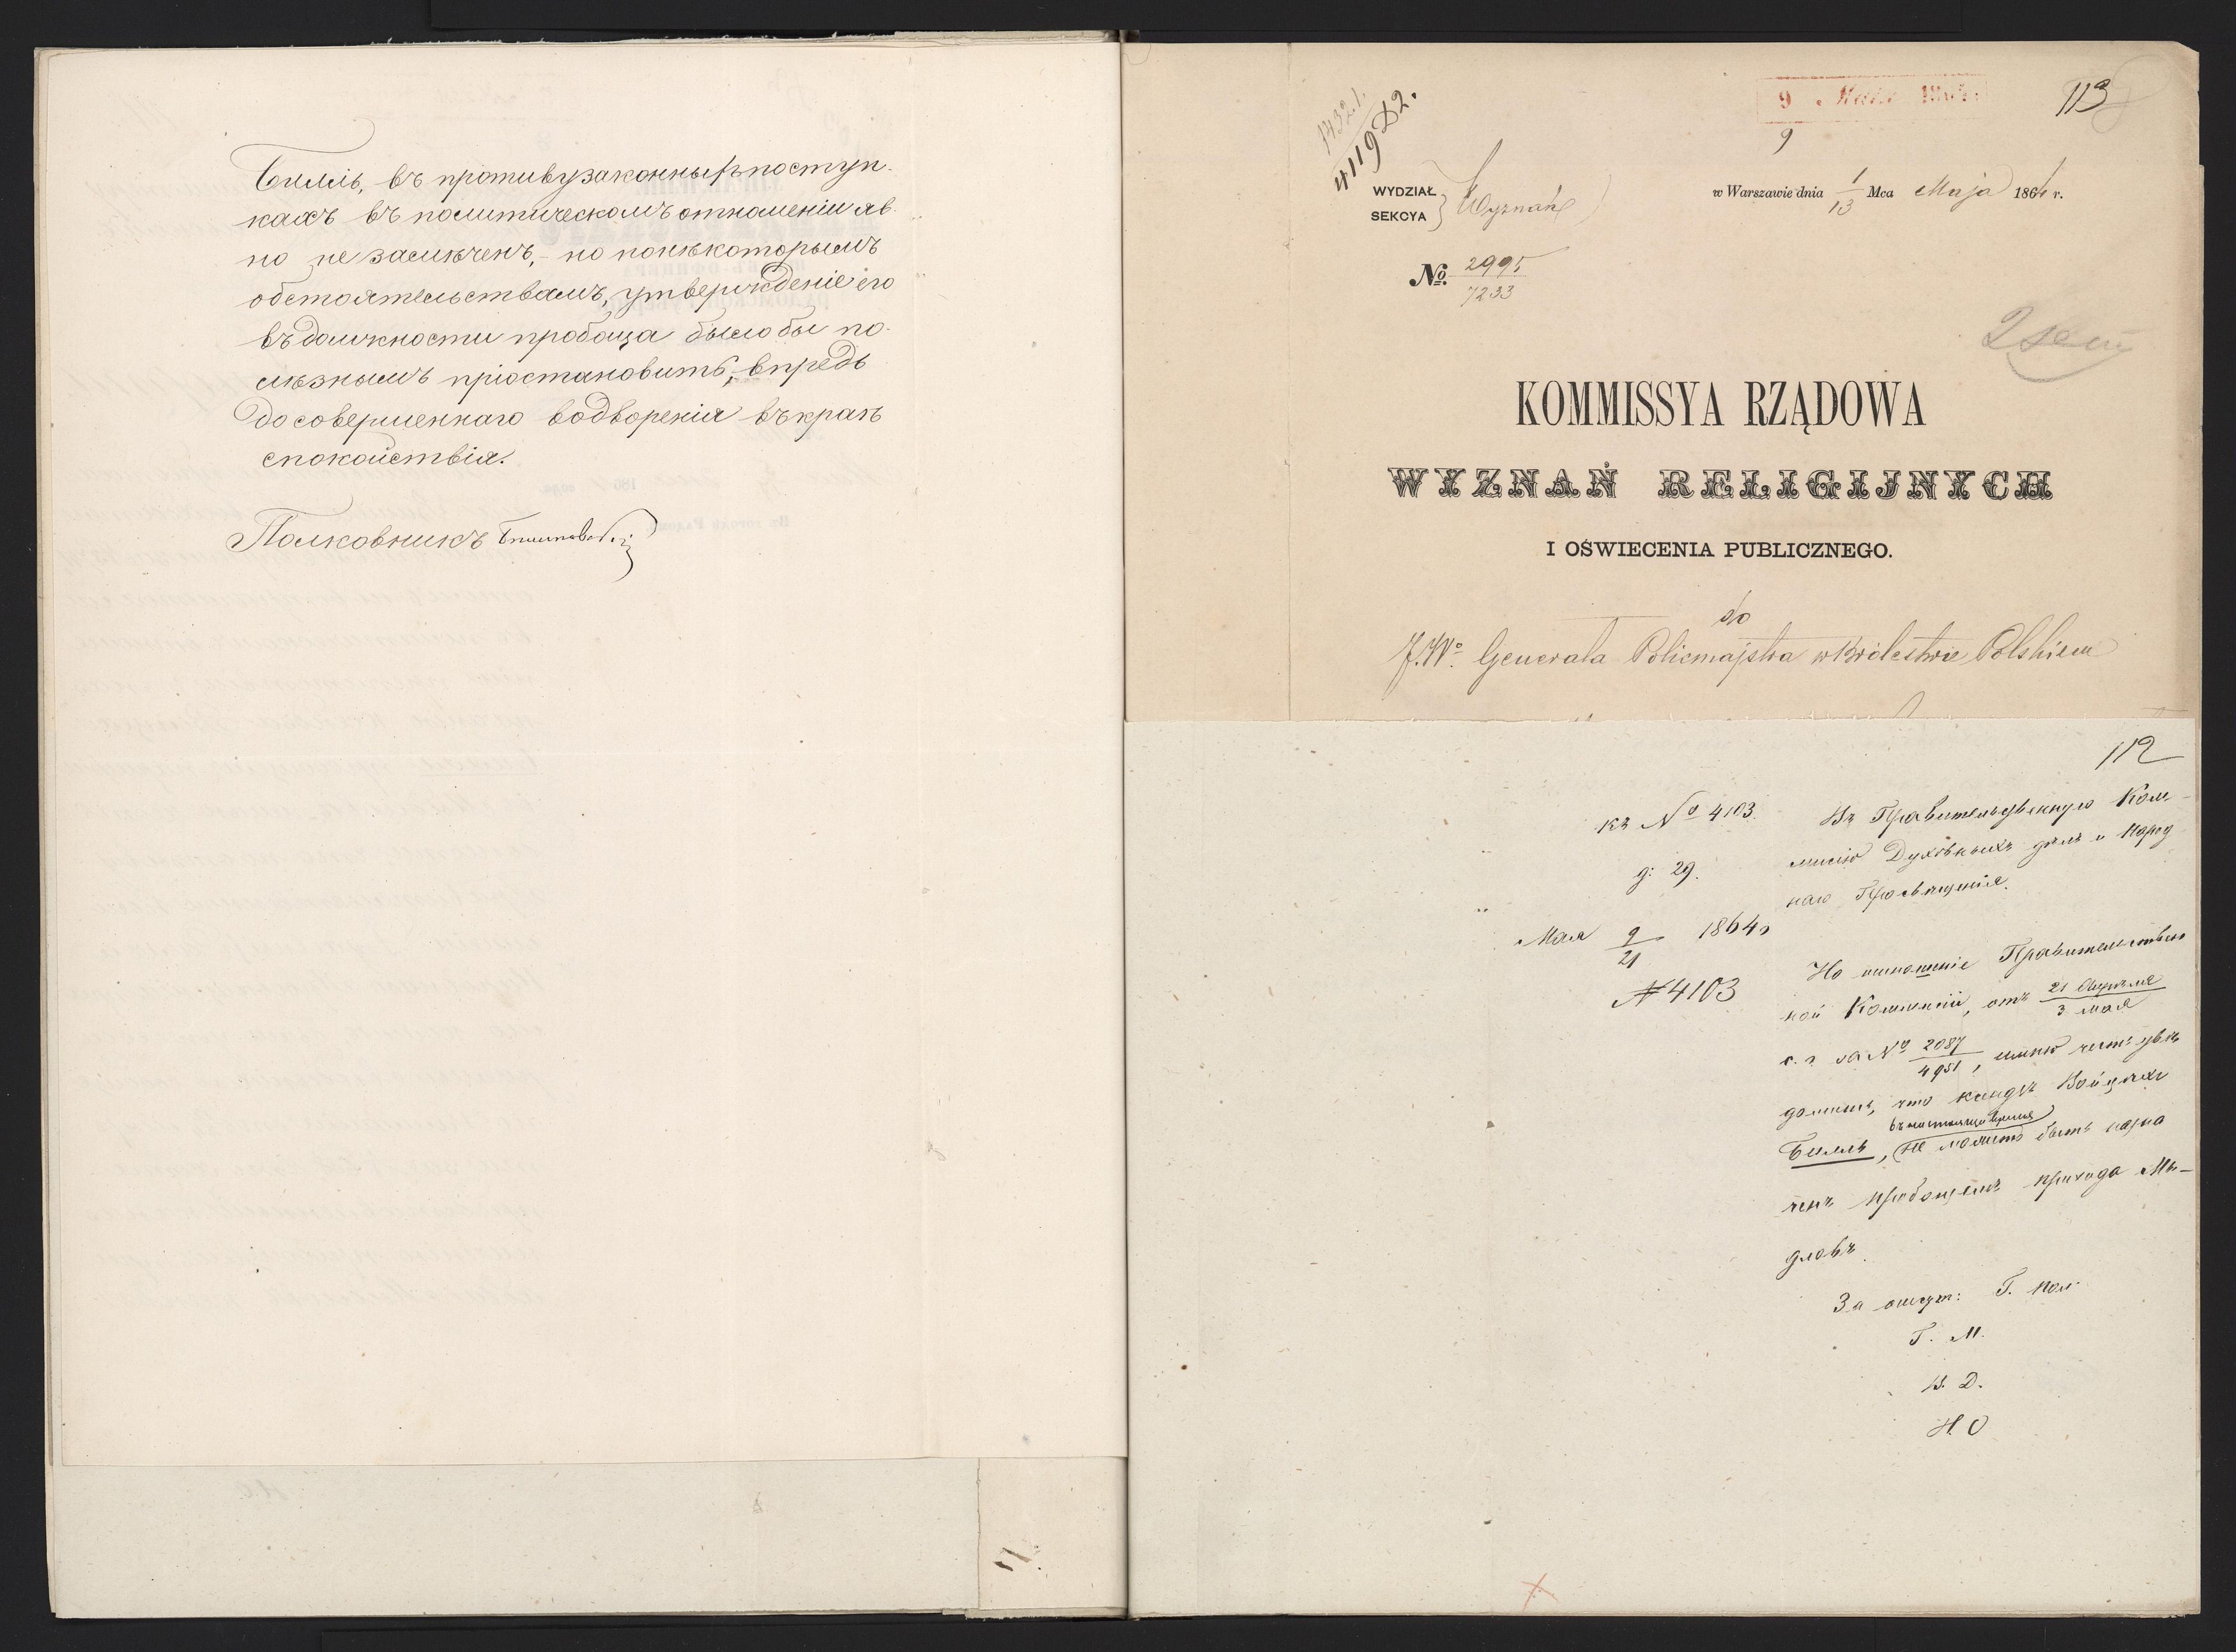 Билль, въ противузаконныхъ поступ-
кахъ въ политическомъ отношеніи яв-
но не замѣченъ, но по нѣкоторымъ
обстоятельствамъ, утвержденіе его
въ должности пробоща было бы по-
лѣзнымъ пріостановить, впредь
до совершеннаго водворенія въ краѣ
спокойствія.
Полковникъ
113
9 Мая 1864
9
1432.1.
4119 D2.
WYDZIAŁ
SEKCYA } Wyznań
w Warszawie dnia 1/13 Mca Maja 1864 r.
№ 2995/7233
KOMMISSYA RZĄDOWA
WYZNAŃ RELIGIJNYCH
I OŚWIECENIA PUBLICZNEGO.
do
J.W. Generała Policmajstra w Królestwie Polskiem
112
къ № 4103.
д: 29.
Мая 9/21 1864 г
№ 4103
Въ Правительственную Ком-
мисію Духовныхъ дѣлъ и Народ
наго Просвѣщенія.
На отношеніе Правительствен
ной Коммисіи, отъ 21 Апрѣля/3 мая
с. г. за № 2087/4951, имѣю честь увѣ
домить, что ксендзъ Войцѣхъ
въ настоящее время
Билль, не можетъ быть назна
ченъ пробощемъ прихода Мѣ-
дловъ.
За отсут: Г. Пол:
Г. М.
В. Д.
Н. О